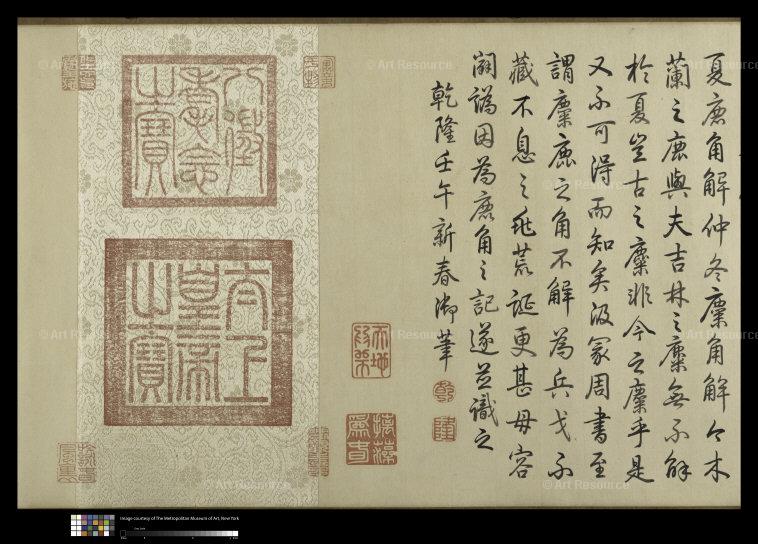 夏鹿角解仲冬麋角解今木
蘭之鹿與夫吉林之麋無不解
於夏豈古之麋非今之麋乎是
又不可得而知矣汲冢周書至
謂麋鹿之角不解為兵戈不
藏不息之兆荒誕更甚毋容
闢譌因為鹿角之記遂並識之
乾隆壬午新春御筆
摛藻為春
八徵耄念之寶
太上皇帝之寶
© Art Resource
Image courtesy of The Metropolitan Museum of Art, New York